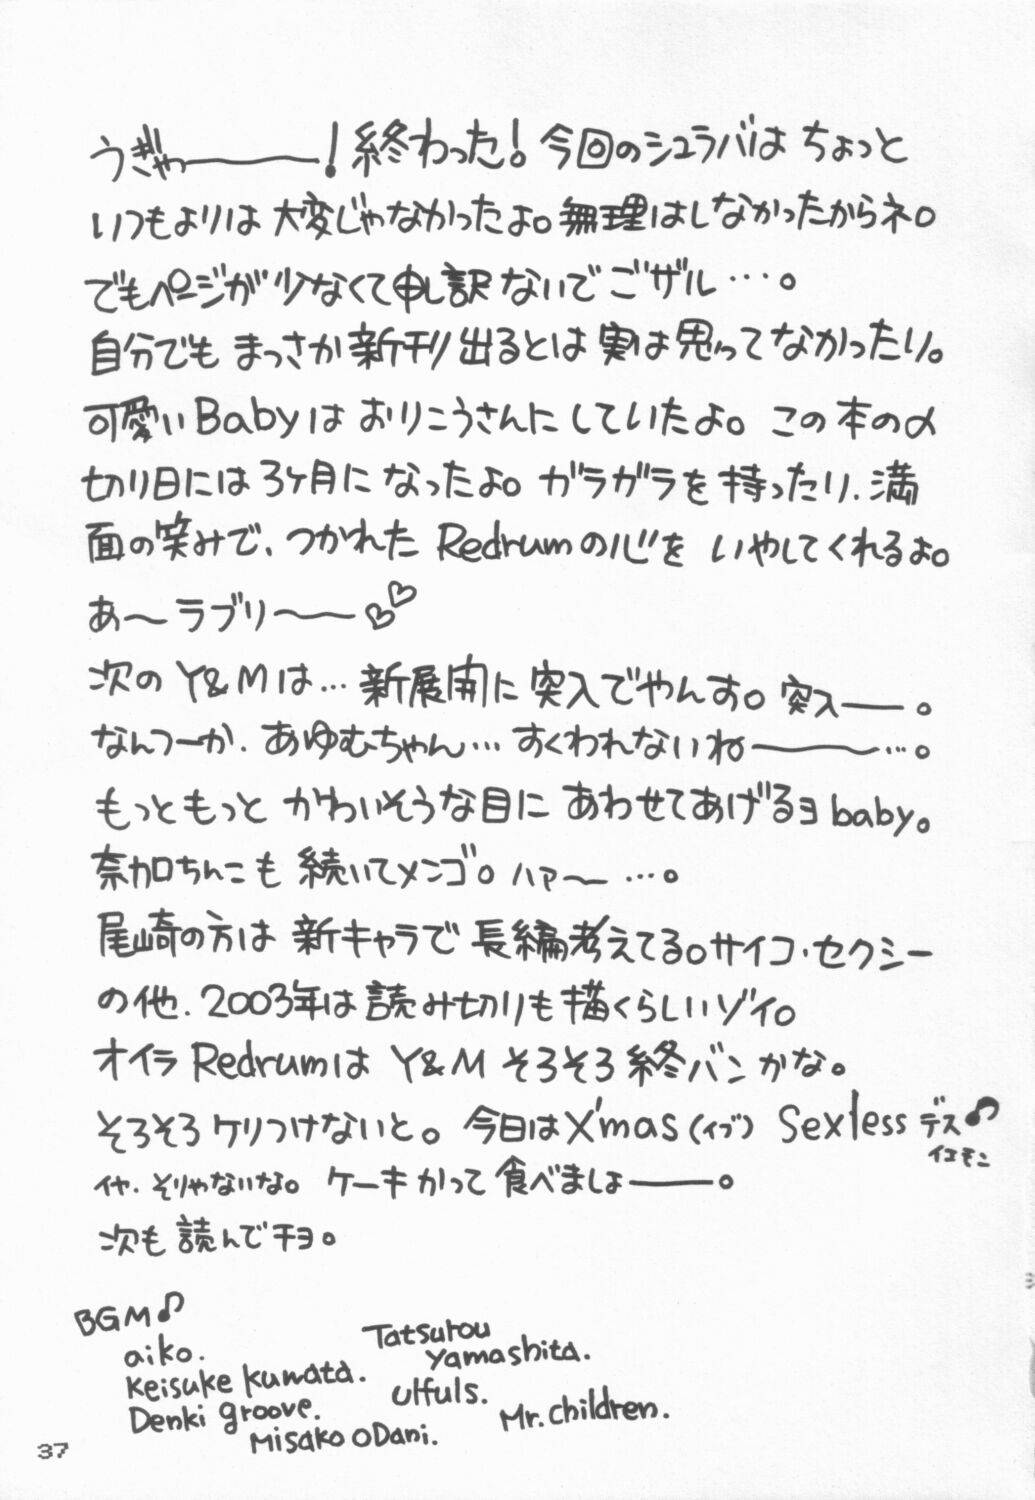 うぎゃーーー!終わった!今回のシュラバはちょっと
いつもよりは大変じゃなかったよ。無理はしなかったからネ。
でもページが少なくて申し訳ないでござル…。
自分でもまっさか新刊出るとは実は思ってなかったり。
可愛いBabyはおりこうさんにしていたよ。この本の〆
切り日には3ケ月になったよ。ガラガラを持ったり、満
面の笑みで、つかれたRedrumの心をいやしてくれるよ。
あ〜ラブリ〜ー♡♡
次のY&Mは…新展開に突入でやんす。突入ーー。
なんつーか、あゆむちゃん…すくわれないねーー…。
もっともっとかわいそうな目にあわせてあげるヨbaby。
奈加ちんこも続いてメンゴ。ハァ〜…。
尾崎の方は新キャラで長編考えてる。サイコ・セクシー
の他、2003年は読み切りも描くらしいゾイ。
オイラRedrumはY&Mそろそろ終バンかな。
そろそろケリつけないと。今日はX'mas(イブ) Sexlessデス♪
イエモン
イヤ、そりゃないな。ケーキかって食べましょーー。
次も読んでチョ。
BGM♪
aiko.
Tatsurou
Yamashita.
Keisuke kuwata.
Ulfuls.
Denki groove.
Mr.children.
Misako oDani.
37